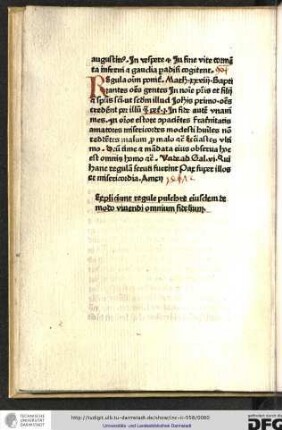 augustin⁹. In vespere ⁊ In fine vite torme̅
ta inferni ⁊ gaudia padisi cogitent.
Regula oi̅m Math. xxviij. Bapti
zantes oe̅s gentes In noie pris et filij
⁊ sp̅us sc̅i. ut sedm illud Johis primo. oe̅s
In fide aute̅
mes. fraternitatis
amatores misericordes modesti huiles no̅
reddentes malum p malo
mo. deu̅ time ⁊ mandata eius observa hoc
est omnis homo ⁊c̅. Unde ad Gal. vi. Qui
hanc regula̅ secuti fuerint Pax super illos
et misericordia. Amen
Expliciunt regule pulchre eiusdem de
modo vivendi omnium fidelium.
TECHNISCHE UNIVERSITÄT DARMSTADT
http://tudigit.ulb.tu-darmstadt.de/show/inc-iii-55b/0080
Universitäts- und Landesbibliothek Darmstadt
DFG